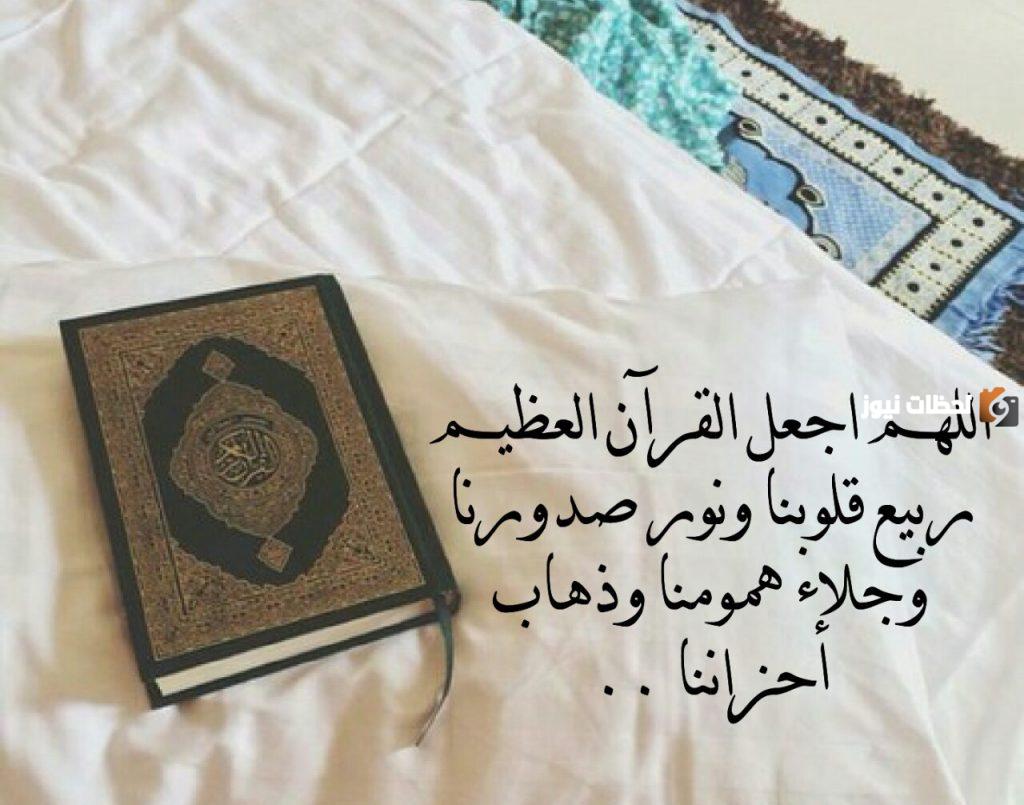 اللهم اجعل القرآن العظيم
ربيع قلوبنا ونور صدورنا
وجلاء همومنا وذهاب
أحزاننا . .
لحظات نيوز
القرآن الكريم